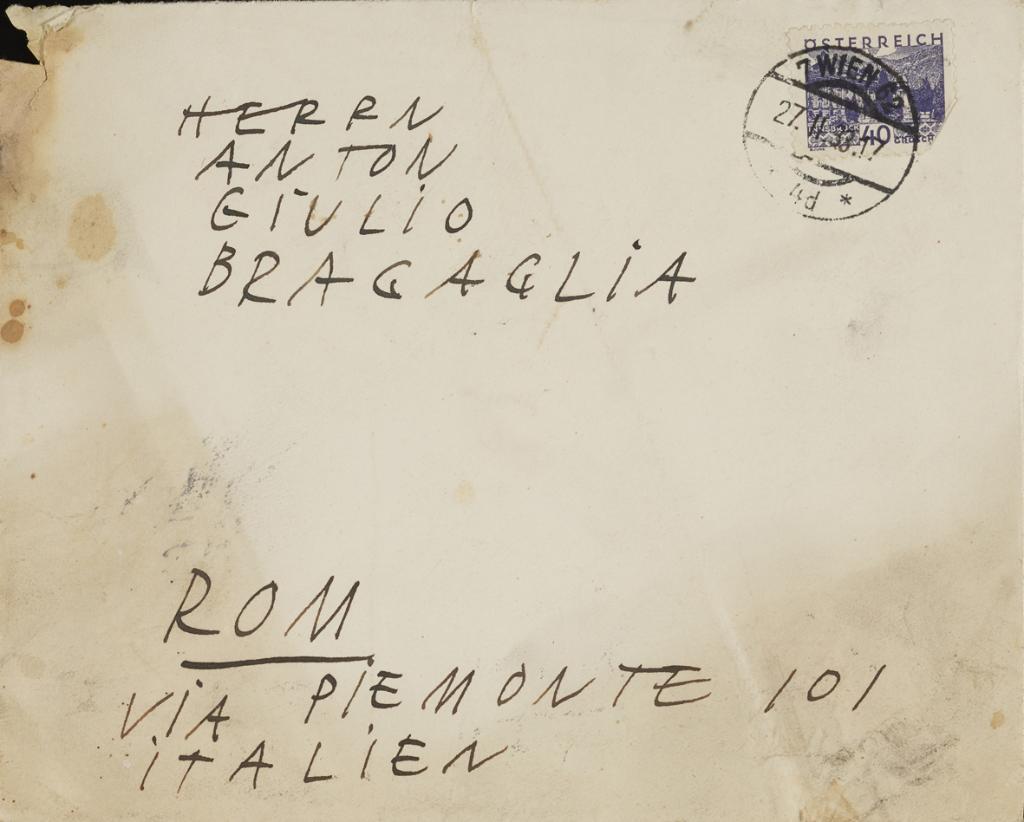 ÖSTERREICH
7 WIEN 65
40 GROSCHEN
HERRN
ANTON
GIULIO
BRAGAGLIA
ROM
VIA PIEMONTE 101
ITALIEN